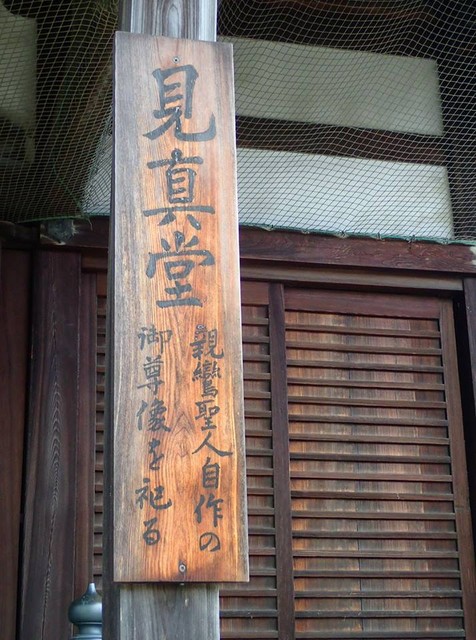 見真堂
親鸞聖人自作の
御尊像を祀る